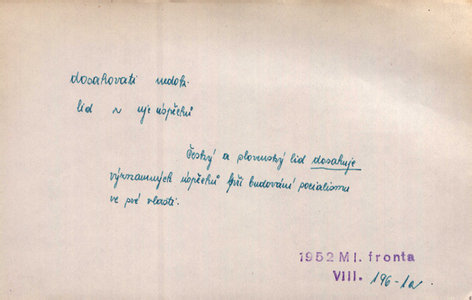 dosahovati nedok.
lid ~ uje úspěchů
Český a slovenský lid dosahuje
významných úspěchů při budování socialismu
ve své vlasti.
1952 Ml. fronta
VIII. 196-1a